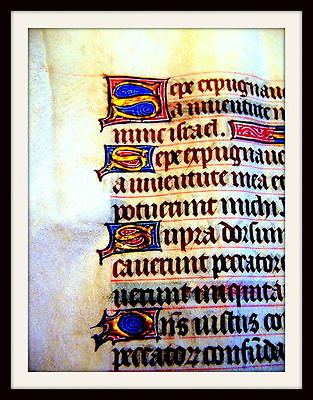 Sepe expugnaue
a iuuentute m
nunc israel.
Sepe expugnaue
a iuuentute mea et
potuerunt michi
Supra dorsum
cauerunt peccatore
uerunt iniquita
Dn̄s iustus co
peccatoꝝ confūda